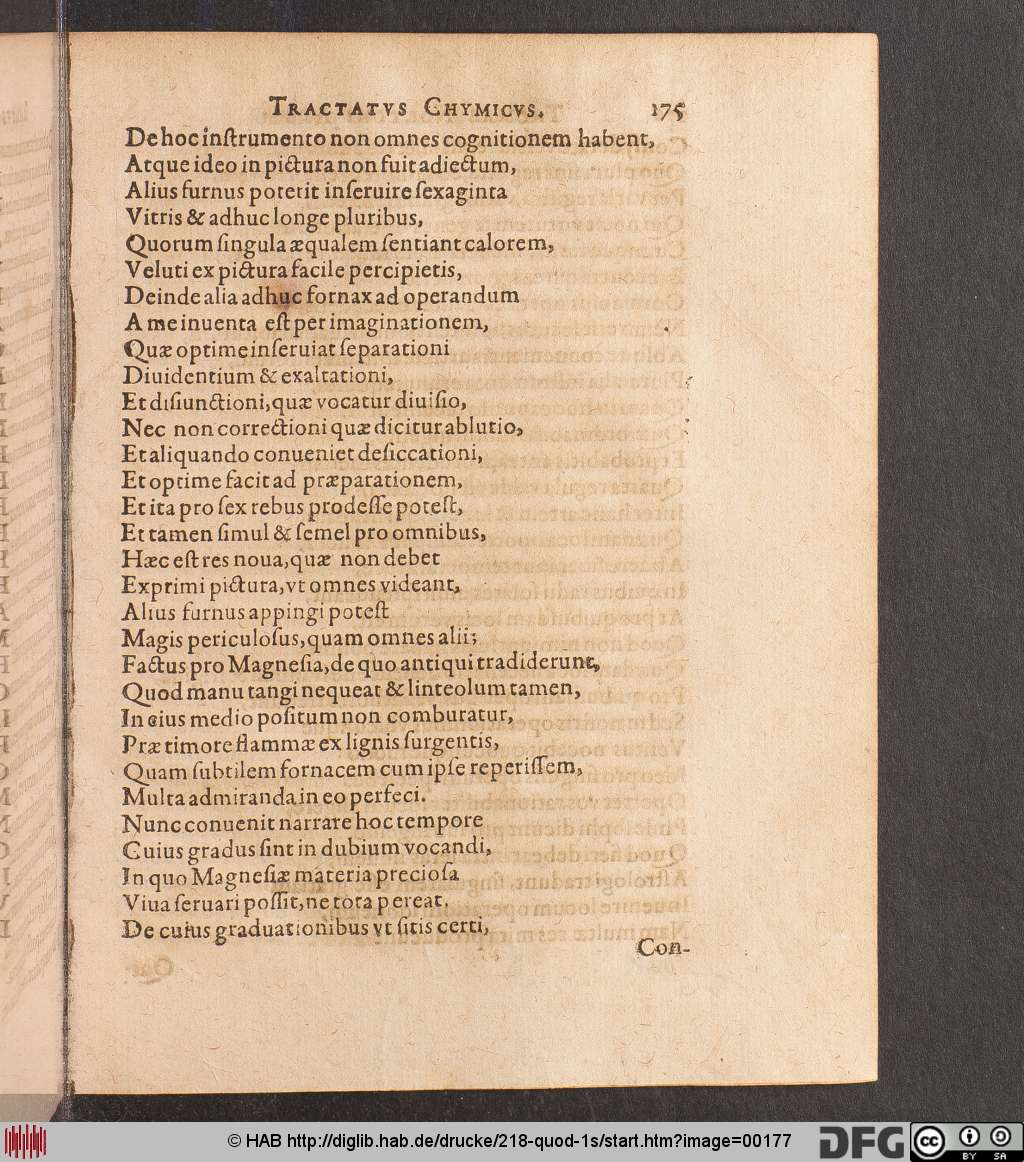 TRACTATVS CHYMICVS. 175
De hoc inſtrumento non omnes cognitionem habent,
Atque ideo in pictura non fuit adiectum,
Alius furnus poterit inſeruire ſexaginta
Vitris & adhuc longe pluribus,
Quorum ſingula æqualem ſentiant calorem,
Veluti ex pictura facile percipietis,
Deinde alia adhuc fornax ad operandum
A me inuenta eſt per imaginationem,
Quæ optime inſeruiat ſeparationi
Diuidentium & exaltationi,
Et diſiunctioni, quæ vocatur diuiſio,
Nec non correctioni quæ dicitur ablutio,
Et aliquando conueniet deſiccationi,
Et optime facit ad præparationem,
Et ita pro ſex rebus prodeſſe poteſt,
Et tamen ſimul & ſemel pro omnibus,
Hæc eſt res noua, quæ non debet
Exprimi pictura, vt omnes videant,
Alius furnus appingi poteſt
Magis periculoſus, quam omnes alii;
Factus pro Magneſia, de quo antiqui tradiderunt,
Quod manu tangi nequeat & linteolum tamen,
In eius medio poſitum non comburatur,
Præ timore flammæ ex lignis ſurgentis,
Quam ſubtilem fornacem cum ipſe reperiſſem,
Multa admiranda in eo perfeci.
Nunc conuenit narrare hoc tempore
Cuius gradus ſint in dubium vocandi,
In quo Magneſiæ materia precioſa
Viua ſeruari poſſit, ne tota pereat.
De cuius graduationibus vt ſitis certi,
Con-
© HAB http://diglib.hab.de/drucke/218-quod-1s/start.htm?image=00177
DFG
cc
BY SA